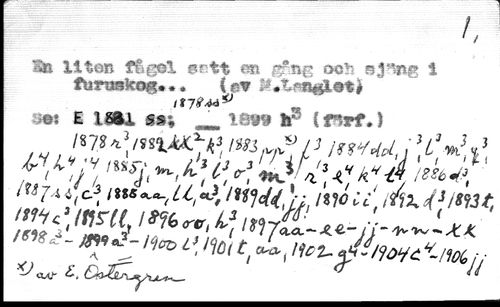 1,
En liten fågel satt en gång och sjöng i
furuskog... (av M.Langlet)
1878 ss x)
Se: E 1881 ss; __ 1899 h³ (förf.)
1878 r³, 1882 kk² k³, 1883 pp x) f³ 1884 dd, j³, l³, m³, q³,
b⁴, h⁴, j⁴, 1885 j, m, h³, l³, o³, m³, r³, e⁴, k⁴, l⁴ 1886 d³,
1887 ss, c³, 1888 aa, ll, a³, 1889 dd, jj, 1890 ii, 1892 d³, 1893 t,
1894 c³, 1895 ll, 1896 oo, h³, 1897 aa-ee-jj-nn-xx
1898 a³- 1899 a³-1900 l³, 1901 t, aa, 1902 g⁴-1904 c⁴-1906 jj
x) av E. Östergren